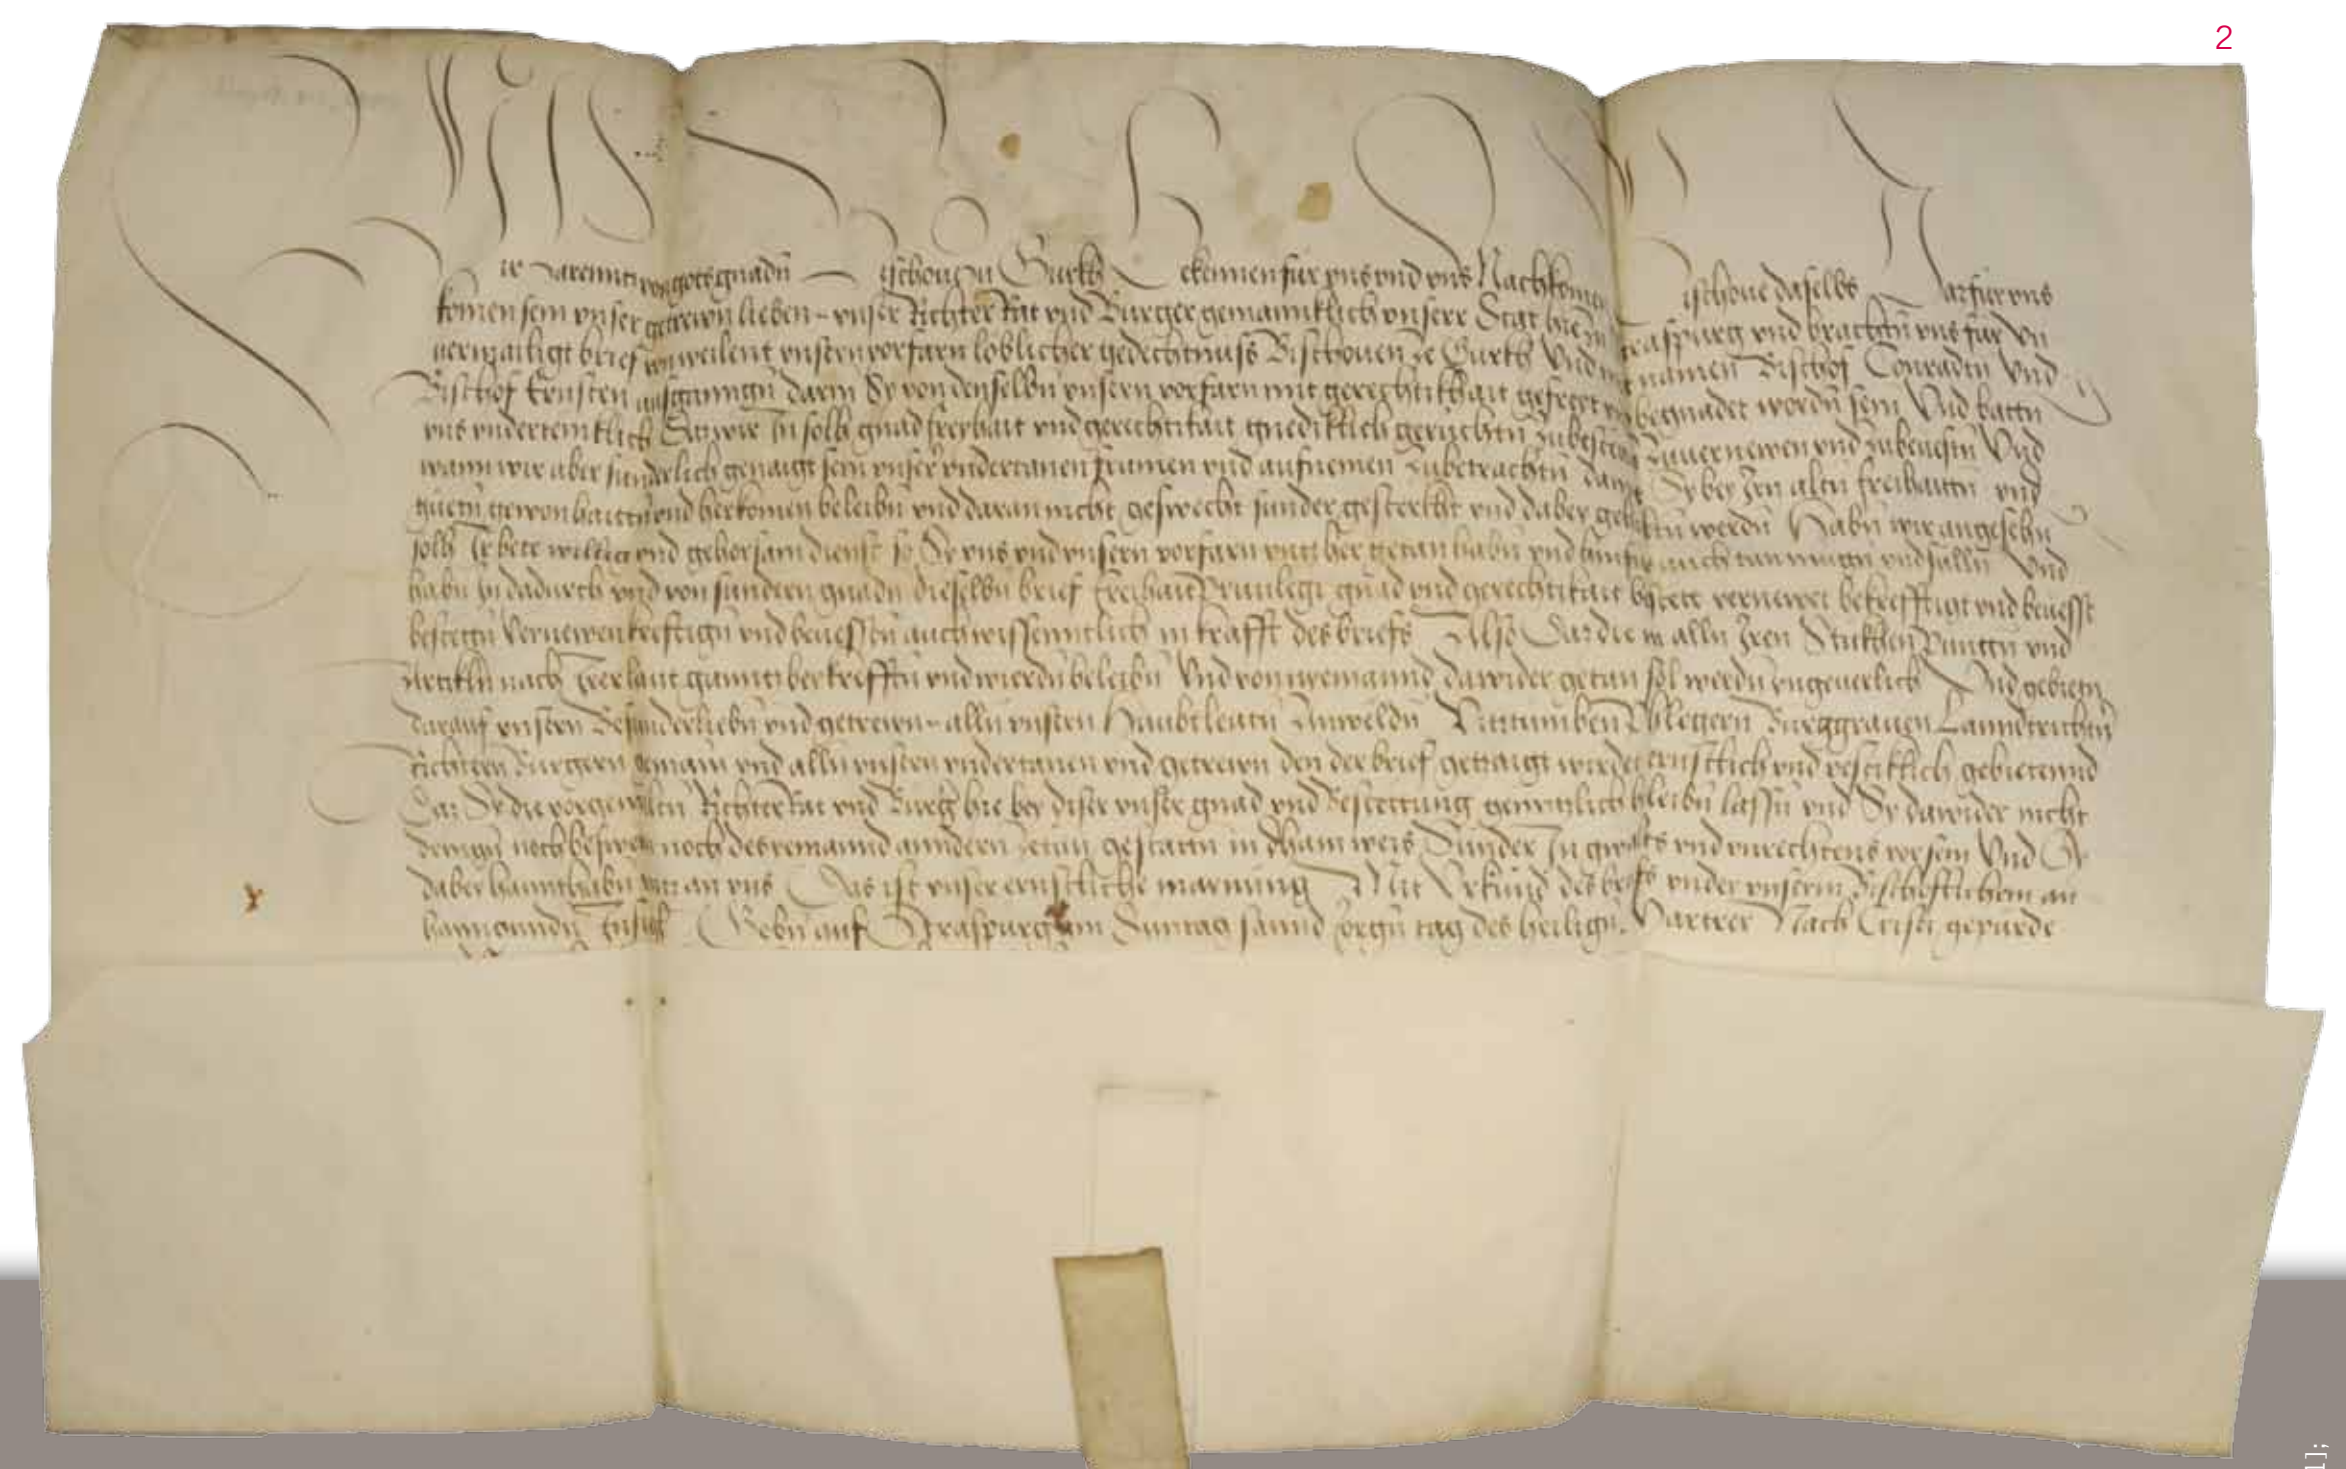 2
Wir Laurenntz von gots gnadn Bischoue zu Gurkh Bekennen für vns vnd vns Nachkomen Bischoue daselbs Das für vns
komen sein vnser getrewn lieben – vnser Richter Rat vnd Burger gemainklich vnserr Stat hie zu Straspurg vnd brachtn vns für Vn
uermailigt brief von weilent vnsern vorfarn loblicher gedechtnuss Bischouen ze Gurkh Vnd mit namen Bischof Conradtn Vnd
Bischof Ernsten ausganngn darin Sy von denselbn vnsern vorfarn mit gerechtikhait gefreyet vnd begnadet wordn sein Vnd battn
vns vnderteniklich Daz wir In solh gnad freyhait vnd gerechtikait gnediklich geruchtn zubestettn Zuuernewen vnd zubeuestn Vnd
wann wir aber sunderlich genaigt sein vnser vndertanen frumen vnd aufnemen zubetrachtn damit Sy bey Irn altn freihaittn vnd
guetn gewonhaittn vnd herkomen beleibn vnd daran nicht geswecht sunder gesterkht vnd dabey gehalttn werdn Habn wir angesehn
solh Ir bete willig vnd gehorsam dienst so Sy vns vnd vnsern vorfarn vntzher getan habn vnd hinfur auch tun mugn vnd sulln Vnd
habn In dadurch vnd von sundern gnadn dieselbn brief freihait Priuilegi gnad vnd gerechtikait bestett vernewet bekrefftigt vnd beuesst
bestettn Vernewen krefftign vnd beuesstn auch wissenntlich in krafft des briefs Also Daz die in alln Iren Stukhen Puncttn vnd
Artikln nach Irer laut ganntz bey krefftn vnd wierdn beleibn Vnd von nyemannd dawider getan sol werdn vngeuerlich Vnd gebietn
darauf vnsern Besunderliebn vnd getrewn – alln vnsern Haubtleutn Anwäldn Vitztumben Phlegern Burggrauen Lanndtrichtrn
Richtern Burgern gemain vnd alln vnsern vndertanen vnd getrewn den der brief getzaigt wirdet ernstlich vnd vestiklich gebietennd
Daz Sy die vorgenanten Richter Rat vnd Burger hie bey diser vnser gnad vnd Bestettung genntzlich bleibn lassn vnd Sy dawider nicht
dringn noch beswern noch des yemannd anndern zetun gestattn in dhain weis Sunder In gwalts vnd vnrechtens vor sein Vnd Sy
dabey hannthabn vntz an vns Das ist vnser ernstliche maynung Mit Vrkund des briefs vnder vnserm Bischoflichem an
hanngundn Insigl Gebn auf Straspurg am Suntag sannd Jorgn tag des heilign Martrer Nach Cristi gepurde